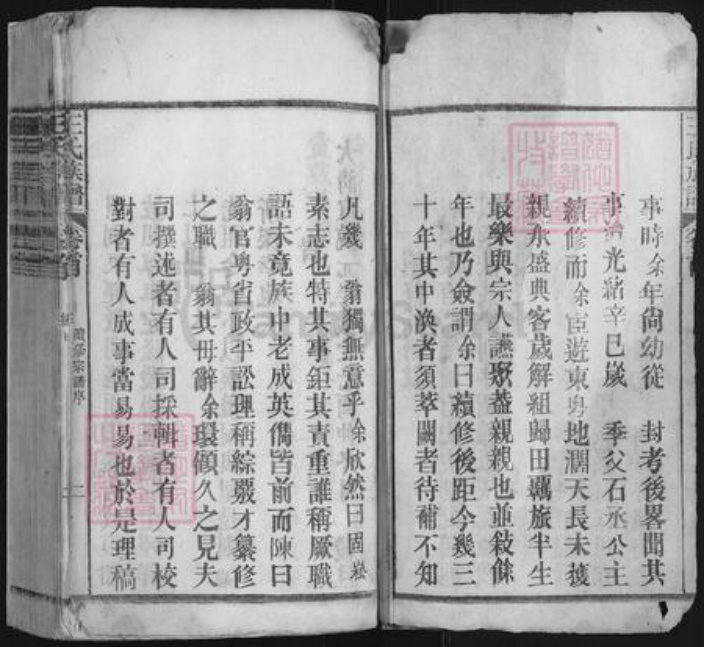 事時余年尚幼從 封考後畧聞其
事 光緒辛巳歲 季父石丞公主
續修而余宦遊東粤地濶天長未獲
親承盛典客歲解組歸田羈旅半生
最樂與宗人讌聚葢親親也並敍餘
年也乃僉謂余曰續修後距今幾三
十年其中渙者須萃闕者待補不知
凡幾 翁獨無意乎余欣然曰固崧
素志也特其事鉅其責重誰稱厥職
語未竟族中老成英儁皆前而陳曰
翁官粤省政平訟理稱綜嚴才纂修
之職 翁其毋辭余環顧久之見夫
司撰述者有人司採輯者有人司校
對者有人成事當易易也於是理稿
王氏族譜 卷首 續修宗譜序 二